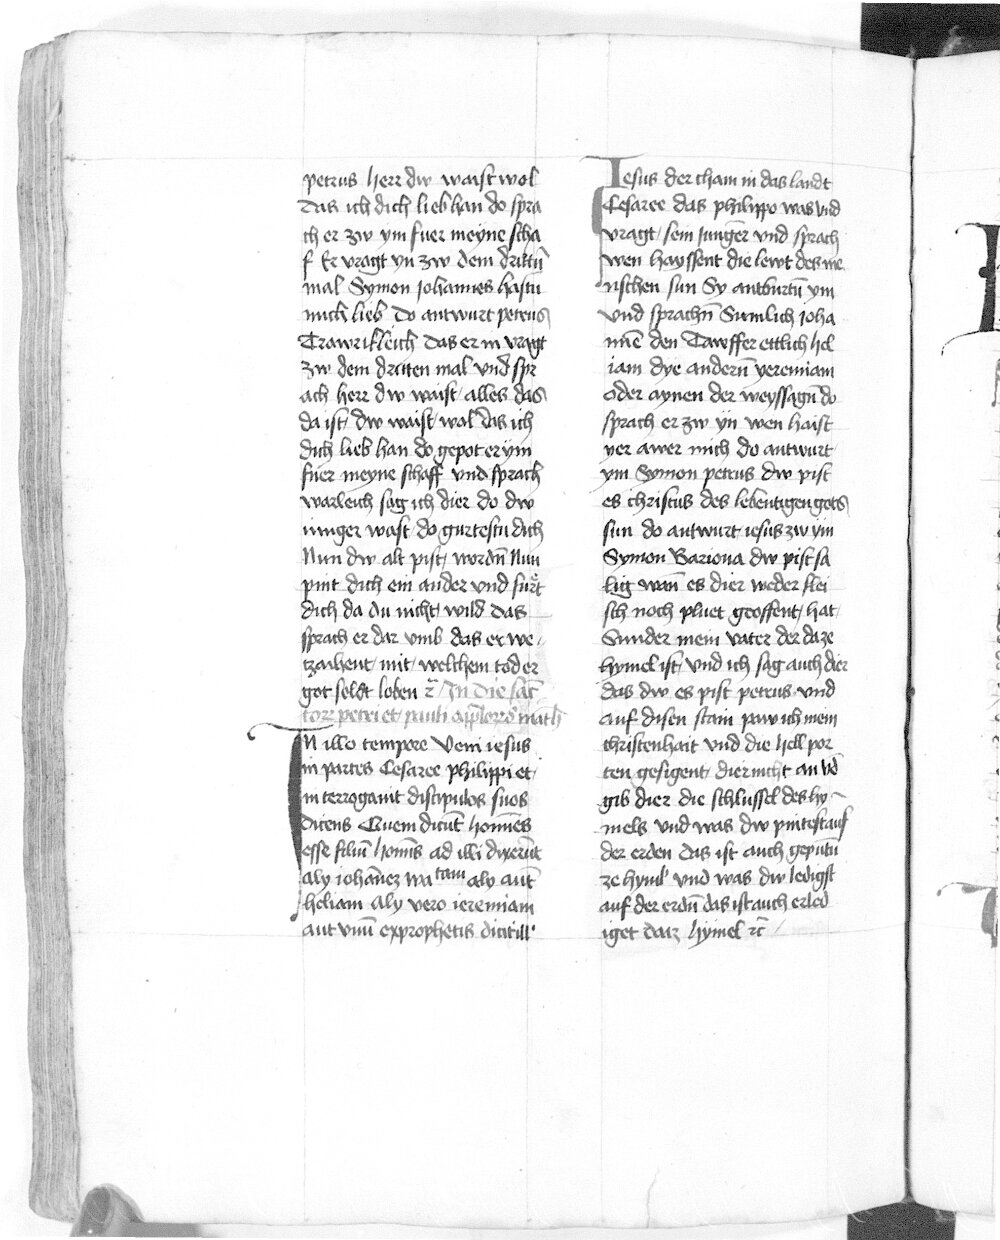 petrus herr dw waist wol
das ich dich lieb han do spra
ch er zw ym fuer meyne scha
f Er vragt yn zw dem drittn̄
mal Symon johannes hastu
mich lieb Do antwurt petrus
Trawrikleich das er in vragt
zw dem dritten mal vnd spr
ach herr dw waist alles das
da ist dw waist wol das ich
dich lieb han do gepot er ym
fuer meyne schaff vnd sprach
warleich sag ich dier do dw
iunger wast do gurtestu dich
Nun dw alt pist wordn̄ Nun
pint dich ein ander vnd furt
dich da du nicht wild das
sprach er dar vmb das er we
tzaihent mit welchem tod er
got soldt loben ꝛc̄ In die san̄c
torꝝ petri et pauli apl̄orꝝ math
In illo tempore Veni iesus
in partes Cesaree philippi et
in terrogauit discipulos suos
dicens Quem dicūt hom̄nes
esse filiū hom̄s ad illi dixerūt
aly iohānez wa tam aly aūt
heliam aly vero ieremiam
aut vnū ex prophetis dicit ill'
Iesus der cham in das landt
Cesaree das philippo was vnd
vragt sein Junḡer vnd sprach
wen hayssent die lewt des me
nschen sun Sy antburtn̄ ym
vnd sprachn̄ Sumlich joha
nnē den Tawffer ettlich hel
iam dye andern̄ yeremiam
oder aynen der weyssagn̄ do
sprach er zw yn wen haist
yer awer mich do antwurt
ym Symon petrus dw pist
es christus des lebentigen gots
sun do antwurt iesus zw ym
Symon Bariona dw pist sa
lig wan̄ es dier weder flei
sch noch pluet geoffent hat
Sunder mein vater der da ze
hymel ist vnd ich sag auch dier
das dw es pist petrus vnd
auf disen stain paw ich mein
christenhait vnd die hell por
ten gesigent dier nicht an vn̄
gib dier die schlussel des hy
mels vnd was dw pintest auf
der erden das ist auch gepūtn̄
ze hyml vnd was dw ledigst
auf der erdn̄ das ist auch erled
iget da ꝛe hymel ꝛc̄